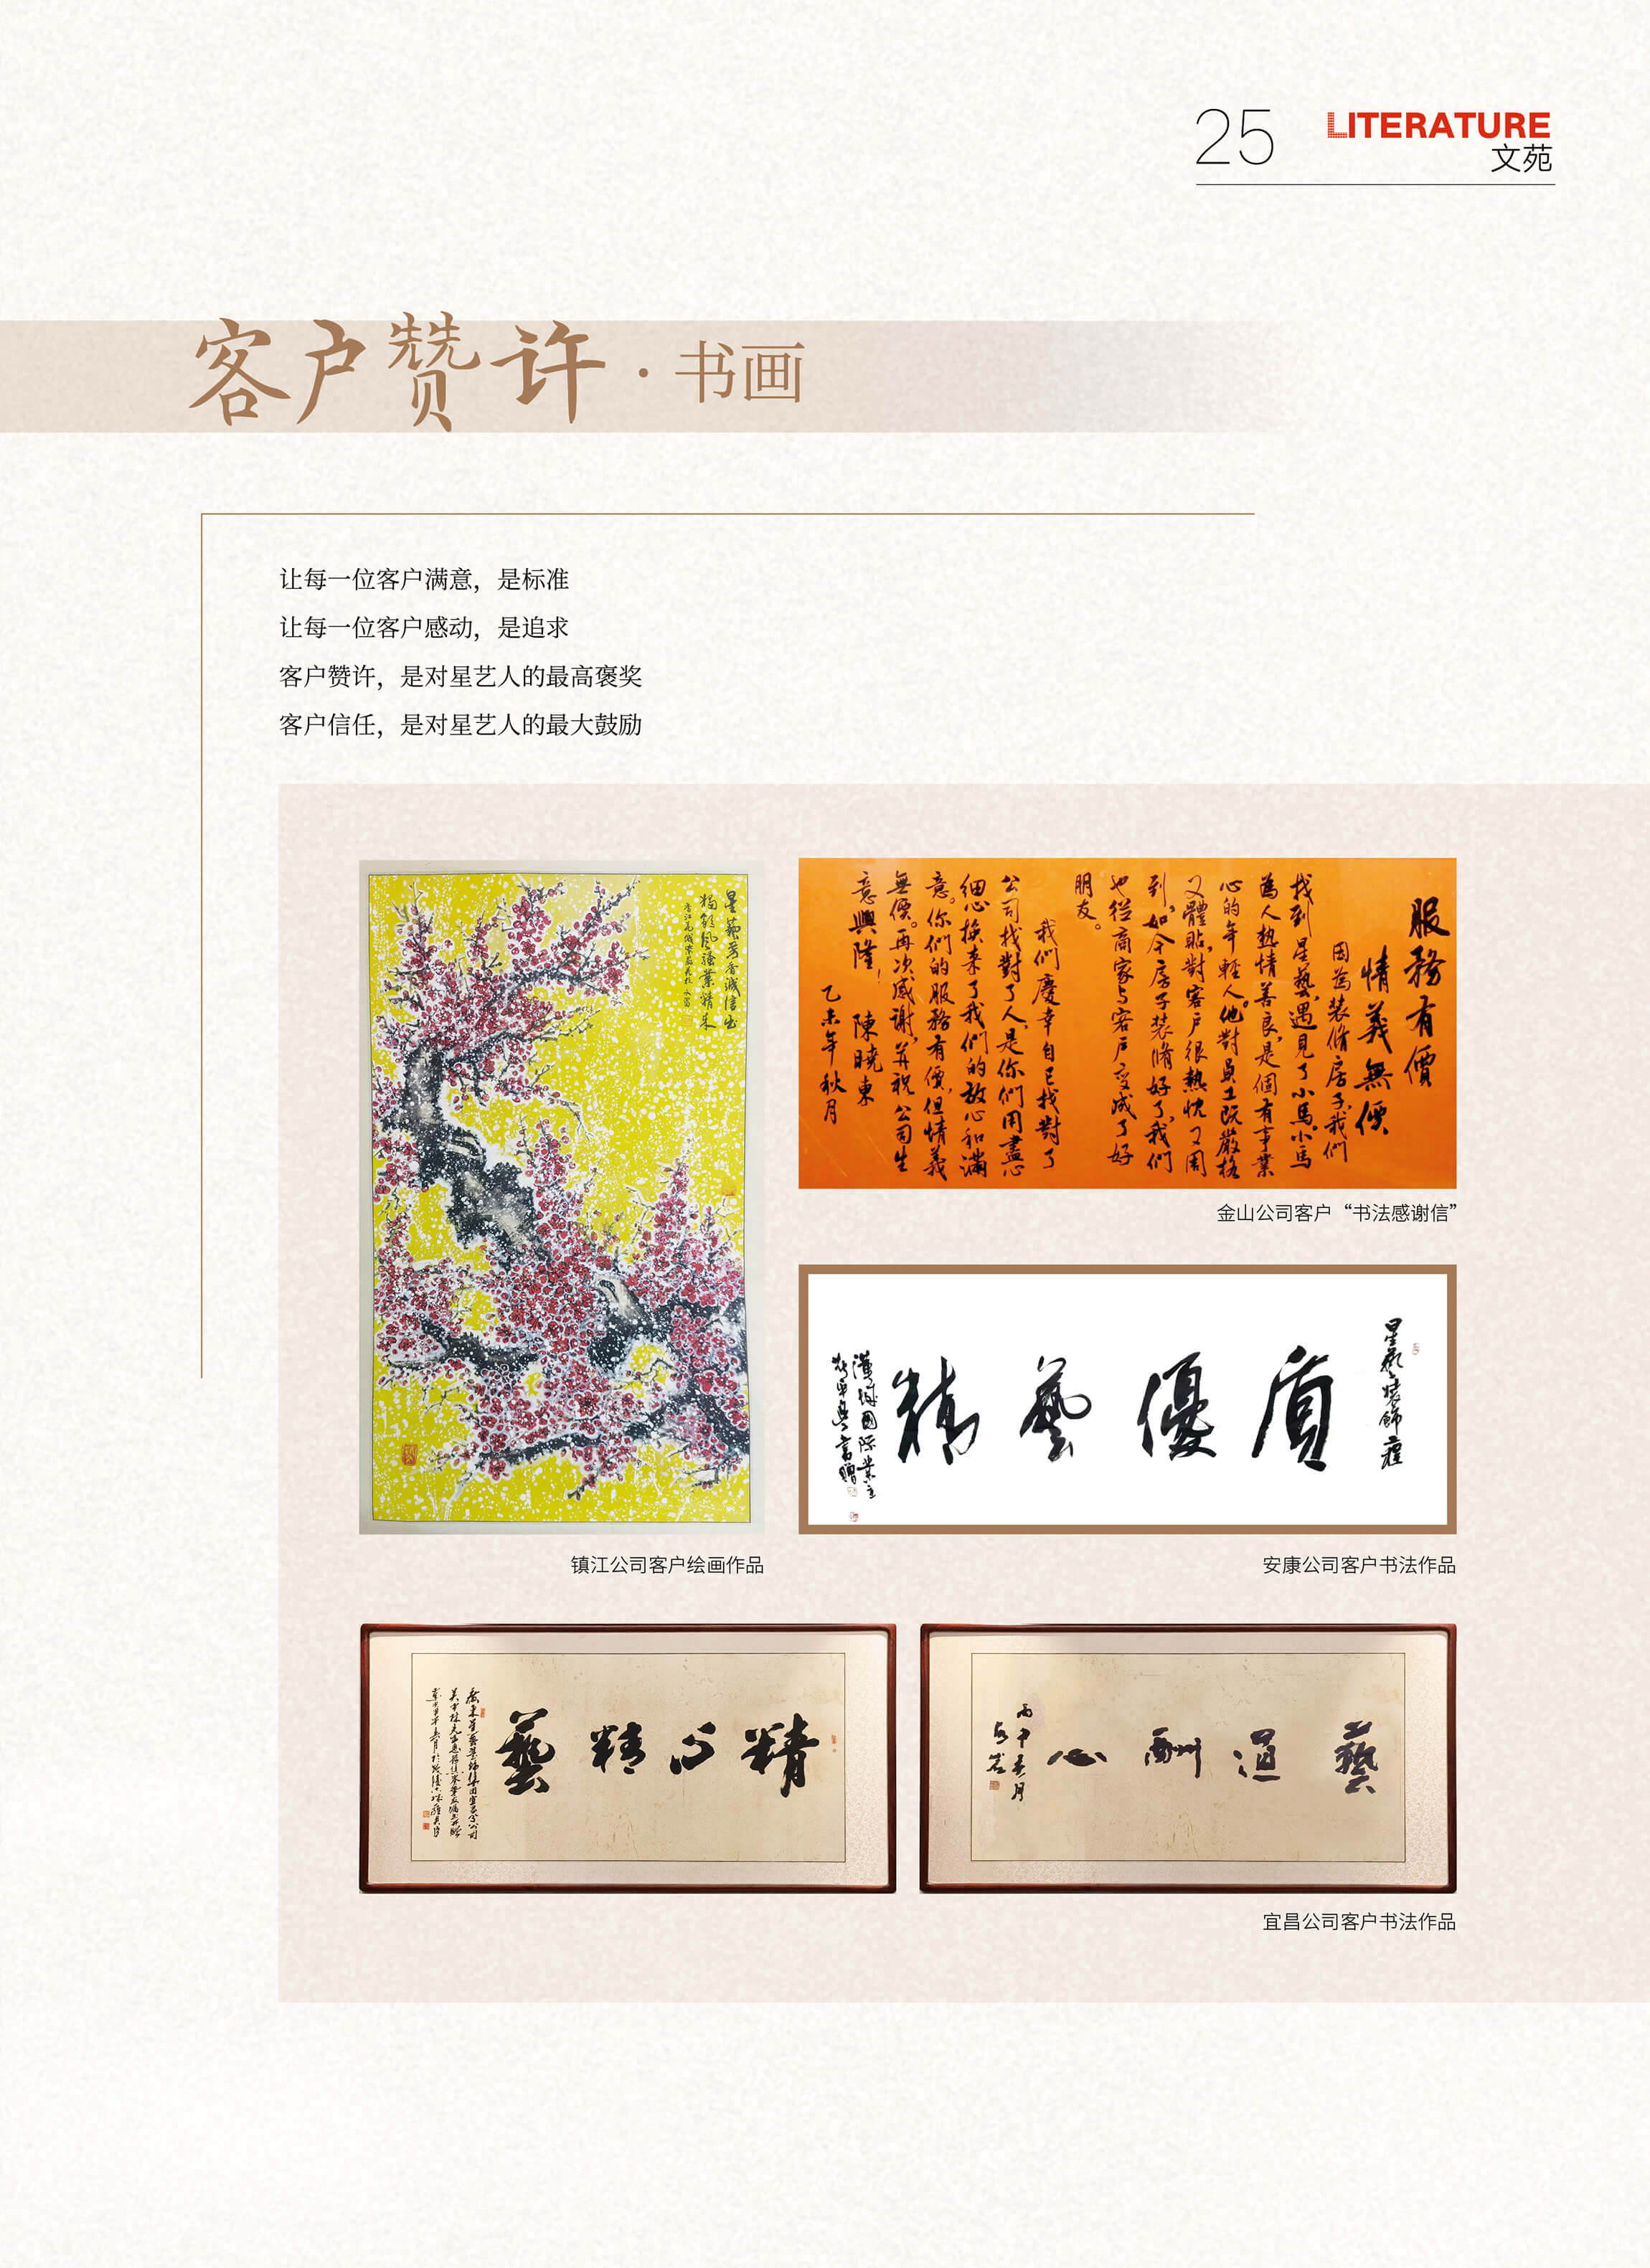 25
LITERATURE
文苑
客户赞许·书画
让每一位客户满意，是标准
让每一位客户感动，是追求
客户赞许，是对星艺人的最高褒奖
客户信任，是对星艺人的最大鼓励
服務有價
情義無價
因為装脩房子，我們
找到星藝，遇見了小馬。小馬
為人熱情善良，是個有事業
心的年輕人。他對員工既嚴格
又體貼，對客户很熱忱又周
到。如今房子装脩好了，我們
也從商家与客户变成了好
朋友。
我們慶幸自己找對了
公司找對了人，是你們用盡心
细心换来了我們的放心和滿
意。你們的服務有價，但情義
無價。再次感谢，并祝公司生
意興隆！
陳曉東
乙未年秋月
金山公司客户“书法感谢信”
星藝装飾
質優藝精
镇江公司客户绘画作品
安康公司客户书法作品
精心精藝
藝道酬心
丙申
宜昌公司客户书法作品